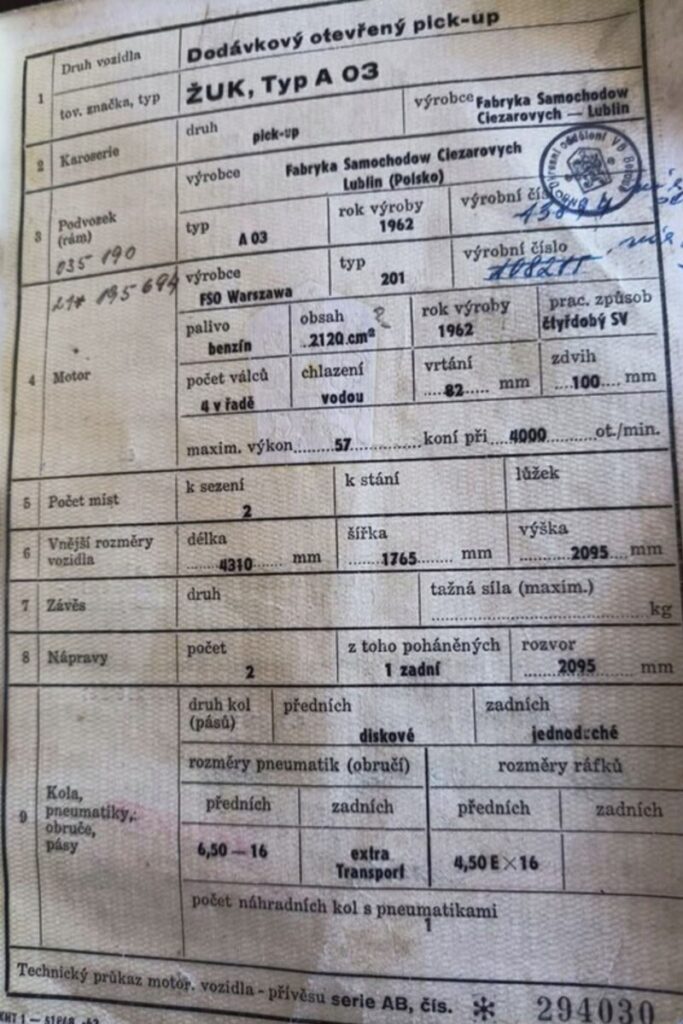 1 Druh vozidla Dodávkový otevřený pick-up
tov. značka, typ ŽUK, Typ A 03
2 Karoserie druh pick-up výrobce Fabryka Samochodow
Ciezarovych — Lublin
3 Podvozek (rám) výrobce Fabryka Samochodow Ciezarovych
Lublin (Polsko)
typ A 03 rok výroby 1962 výrobní čís
035 190
21* 195 694
4 Motor výrobce FSO Warszawa typ 201 výrobní číslo
palivo benzín obsah 2120 cm² rok výroby 1962 prac. způsob čtyřdobý SV
2
počet válců 4 v řadě chlazení vodou vrtání 82 mm zdvih 100 mm
maxim. výkon 57 koní při 4000 ot./min.
5 Počet míst k sezení 2 k stání lůžek
6 Vnější rozměry vozidla délka 4310 mm šířka 1765 mm výška 2095 mm
7 Závěs druh tažná síla (maxim.) kg
8 Nápravy počet 2 z toho poháněných 1 zadní rozvor 2095 mm
9 Kola, pneumatiky, obruče, pásy
druh kol (pásů) předních diskové zadních jednoduché
rozměry pneumatik (obručí) rozměry ráfků
předních zadních předních zadních
6,50 — 16 extra Transport 4,50 E×16
počet náhradních kol s pneumatikami
1
Technický průkaz motor. vozidla - přívěsu serie AB, čís. * 294030